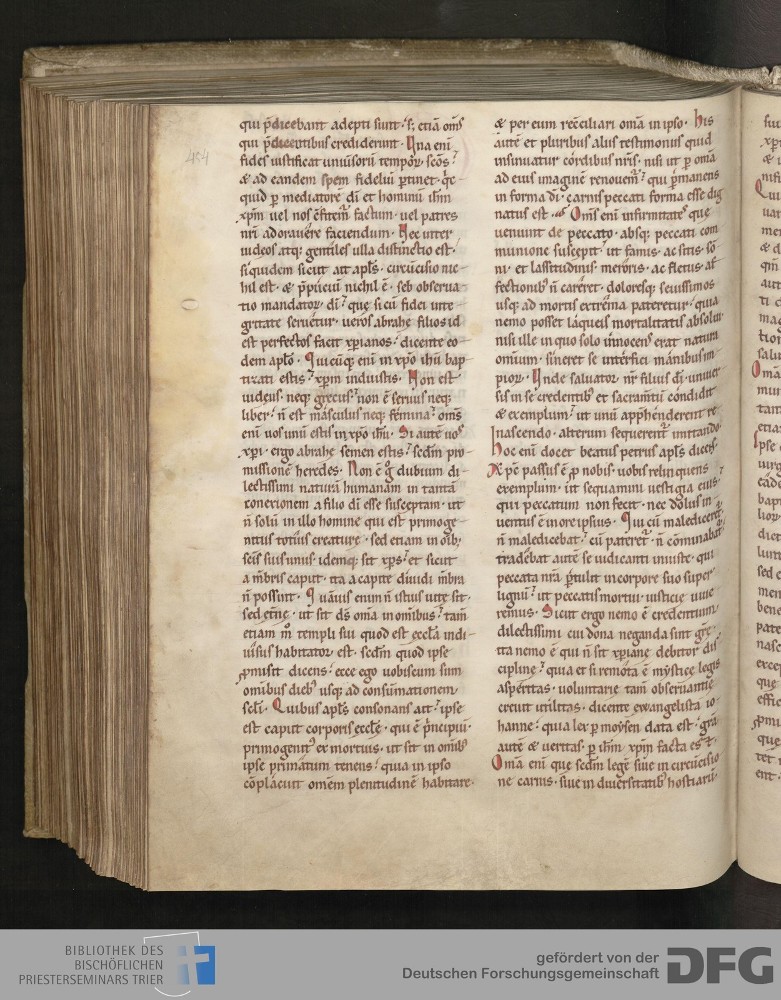 454
qui p̄dicebant adepti sunt. s; etiā om̄s
qui p̄dicentibus crediderunt. Una eni
fides iustificat uniuersorū tempoꝝ sc̄os
& ad eandem spem fideliū ꝑtinet. q̄c
quid ꝑ mediatorē dī et hominū ih̄m
xp̄m uel nos c̄fitem᷑ factum. uel patres
nr̄i adorauēre faciendum. Nec inter
iudeos atq; gentiles ulla distinctio est.
siquidem sicut ait apl̄s. circūcisio nic
hil est. & p̄puciū nichil ē. sed obserua
tio mandatoꝝ dī. que si cū fidei inte
gritate seruetur. ueros abrahe filios id
est perfectos facit xp̄ianos. dicente eo
dem aplo. Quicūq; eni in xp̄o ih̄u bap
tizati estis. xp̄m induistis. Non est
iudeus. neq; grecus. non ē seruus neq;
liber. n̄ est masculus neq; femina. om̄s
eni uos unū estis in xp̄o ih̄u. Si autē uos
xp̄i. ergo abrahe semen estis. scdm pro
missionē heredes. Non ē g̊ dubium di
lectissimi naturā humanam in tantā
conexionem a filio dī esse susceptam. ut
n̄ solū in illo homine qui est primoge
nitus totius creature. sed etiam in oīb;
scīs suis unus. idemq; sit xp̄s. et sicut
a mēbris caput. ita a capite diuidi mēbra
n̄ possunt. Quāuis enim n̄ istius uite sit.
sed et̄ne. ut sit ds̄ oma in omībus. tam̄
etiam m̊ templi sui quod est ecclā indi
uisus habitator est. scdm quod ipse
ꝓmisit dicens. ecce ego uobiscum sum
omībus dieb; usq; ad consūmationem
scl̄i. Quibus apl̄s consonans ait. ipse
est caput corporis eccl̄e. qui ē p̄ncipiū.
primogenit᷒ ex mortuis. ut sit in omīb᷒
ipse primatum tenens. quia in ipso
cōplacuit omēm plenitudinē habitare.
& per eum recc̄iliari omā in ipso. His
autē et pluribus aliis testimoniis quid
insinuatur cordibus nr̄is. nisi ut ꝑ omā
ad eius imaginē renouem᷑. qui ꝑmanens
in forma dī. carnis peccati forma esse dig
natus est. Om̄s eni infirmitates que
ueniunt de peccato. absq; peccati com
munione suscepit. ut famis. ac sitis. sō
ni. et lassitudinis. meroris. ac fletus. af
fectionib᷒ n̄ careret. doloresq; seuissimos
usq; ad mortis extrema pateretur. quia
nemo posset laqueis mortalitatis absolui
nisi ille in quo solo innocens erat natura
omnium. sineret se interfici manibus im
pioꝝ. Unde saluator nr̄ filius dī. uniuer
sis in se credentib᷒ et sacramtū condidit
& exemplum. ut unū appħenderent re
nascendo. alterum sequerent᷑ imitando.
Hoc eni docet beatus petrus apl̄s dicens.
Xp̄c passus ē ꝓ nobis. uobis relinquens
exemplum. ut sequamini uestigia eius.
qui peccatum non fecit. nec dolus in
uentus ē in ore ipsius. Qui cū malediceret᷑.
n̄ maledicebat. cū pateret᷑. n̄ cōminabat᷑.
tradebat autē se iudicanti iniuste. qui
peccata nr̄a ꝑtulit in corpore suo super
lignū. ut peccatis mortui. iusticie uiue
remus. Sicut ergo nemo ē credentium
dilectissimi cui dona neganda sint gr̄e.
ita nemo ē qui n̄ sit xp̄iane debitor dis
cipline. quia et si remota ē mystice legis
asperitas. uoluntarie tam̄ obseruantie
creuit utilitas. dicente ewangelista io
hanne. quia lex ꝑ moysen data est. gr̄a
autē & ueritas. ꝑ ih̄m xp̄m facta est.
Omā eni que scdm legē siue in circūcisio
ne carnis. siue in diuersitatib᷒ hostiarū.
BIBLIOTHEK DES
BISCHÖFLICHEN
PRIESTERSEMINARS TRIER
gefördert von der
Deutschen Forschungsgemeinschaft
DFG